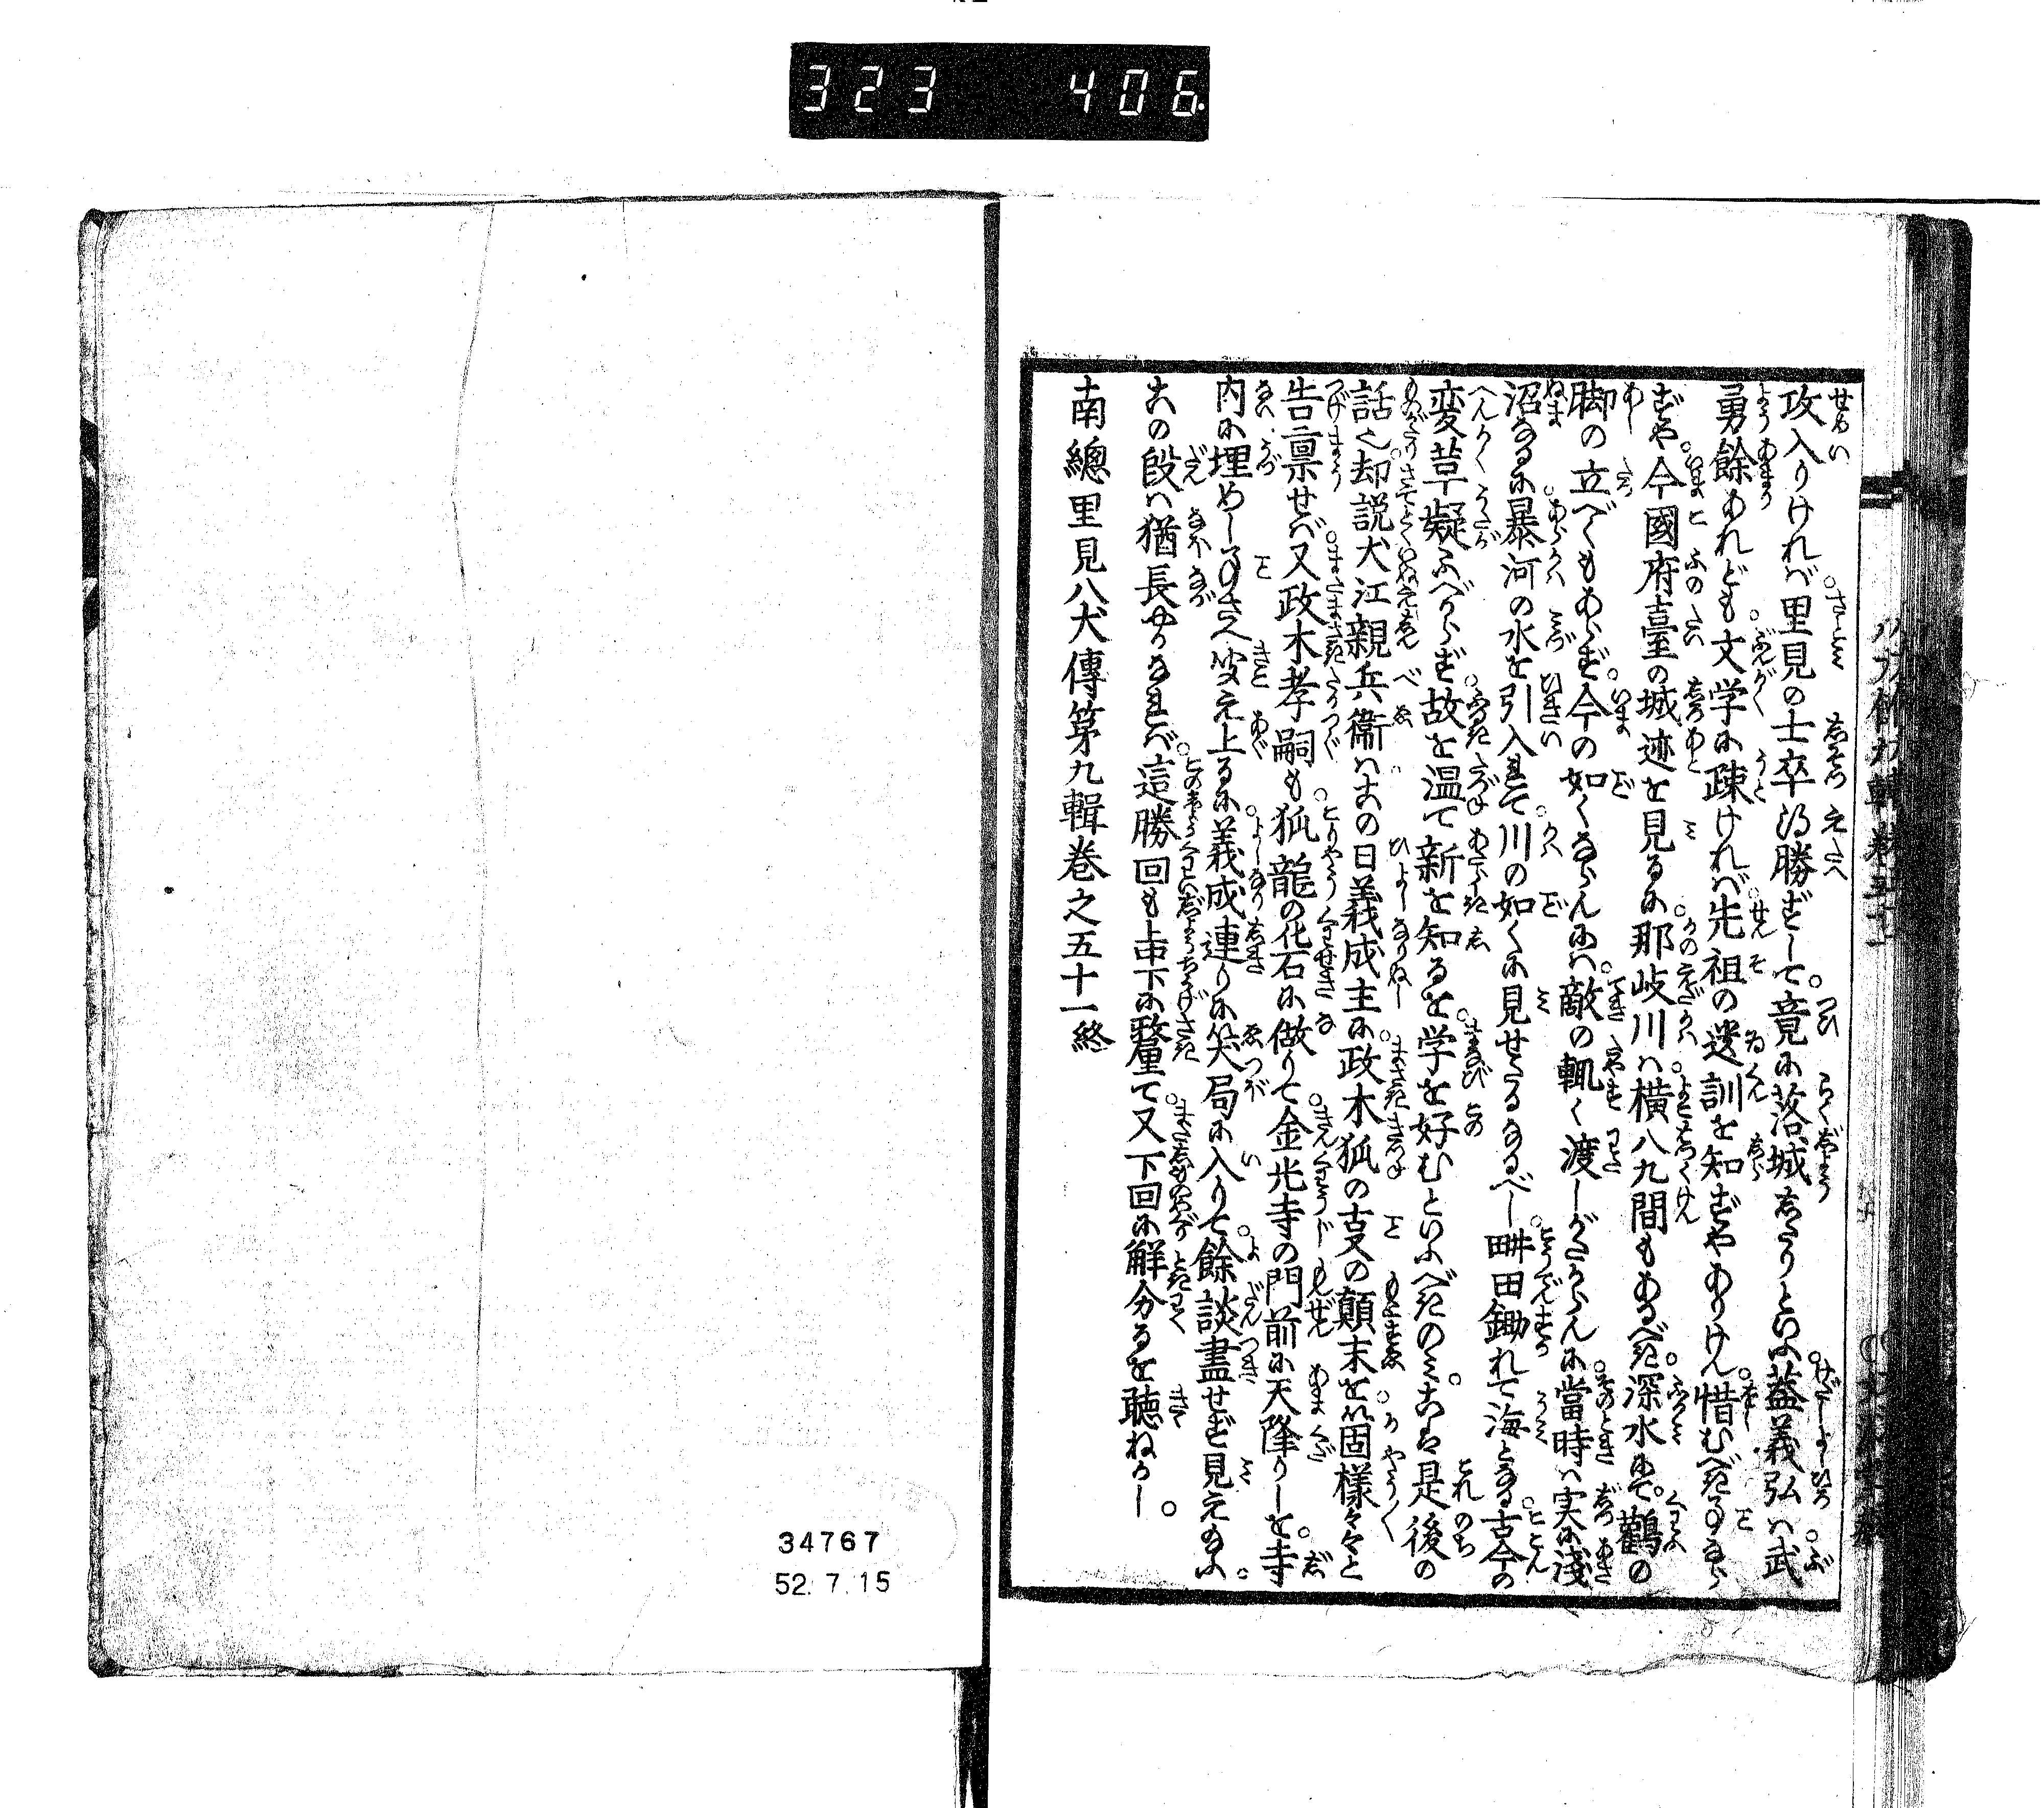 323 406
攻入りければ里見の士卒得勝ずして竟に落城したりといふ蓋義弘は武
勇餘あれども文学に疎ければ先祖の遺訓を知ずやありけん惜むべき事なら
ずや今國府臺の城迹を見るに那岐川は横八九間もあるべき深水にて鸛の
脚の立べくもあらず今の如くならんには敵の輙く渡しがたからんに當時は実に淺
沼なるに暴河の水を引入れて川の如くに見せたるなるべし畊田鋤れて海となる古今の
変革疑ふべからず故を温て新を知るを学を好むといふべきのみこは是後の
話也却説犬江親兵衛はこの日義成主に政木狐の事の顛末を箇様々々と
告禀せば又政木孝嗣も狐龍の化石に做りて金光寺の門前に天降りしを寺
内に埋めし事さへ聞え上るに義成連りに笑局に入りて餘談盡せず見え給ふ
この段は猶長やかなれば這勝回も上中下に釐て又下回に解分るを聴ねかし
南總里見八犬傳第九輯巻之五十一終
34767
52.7.15